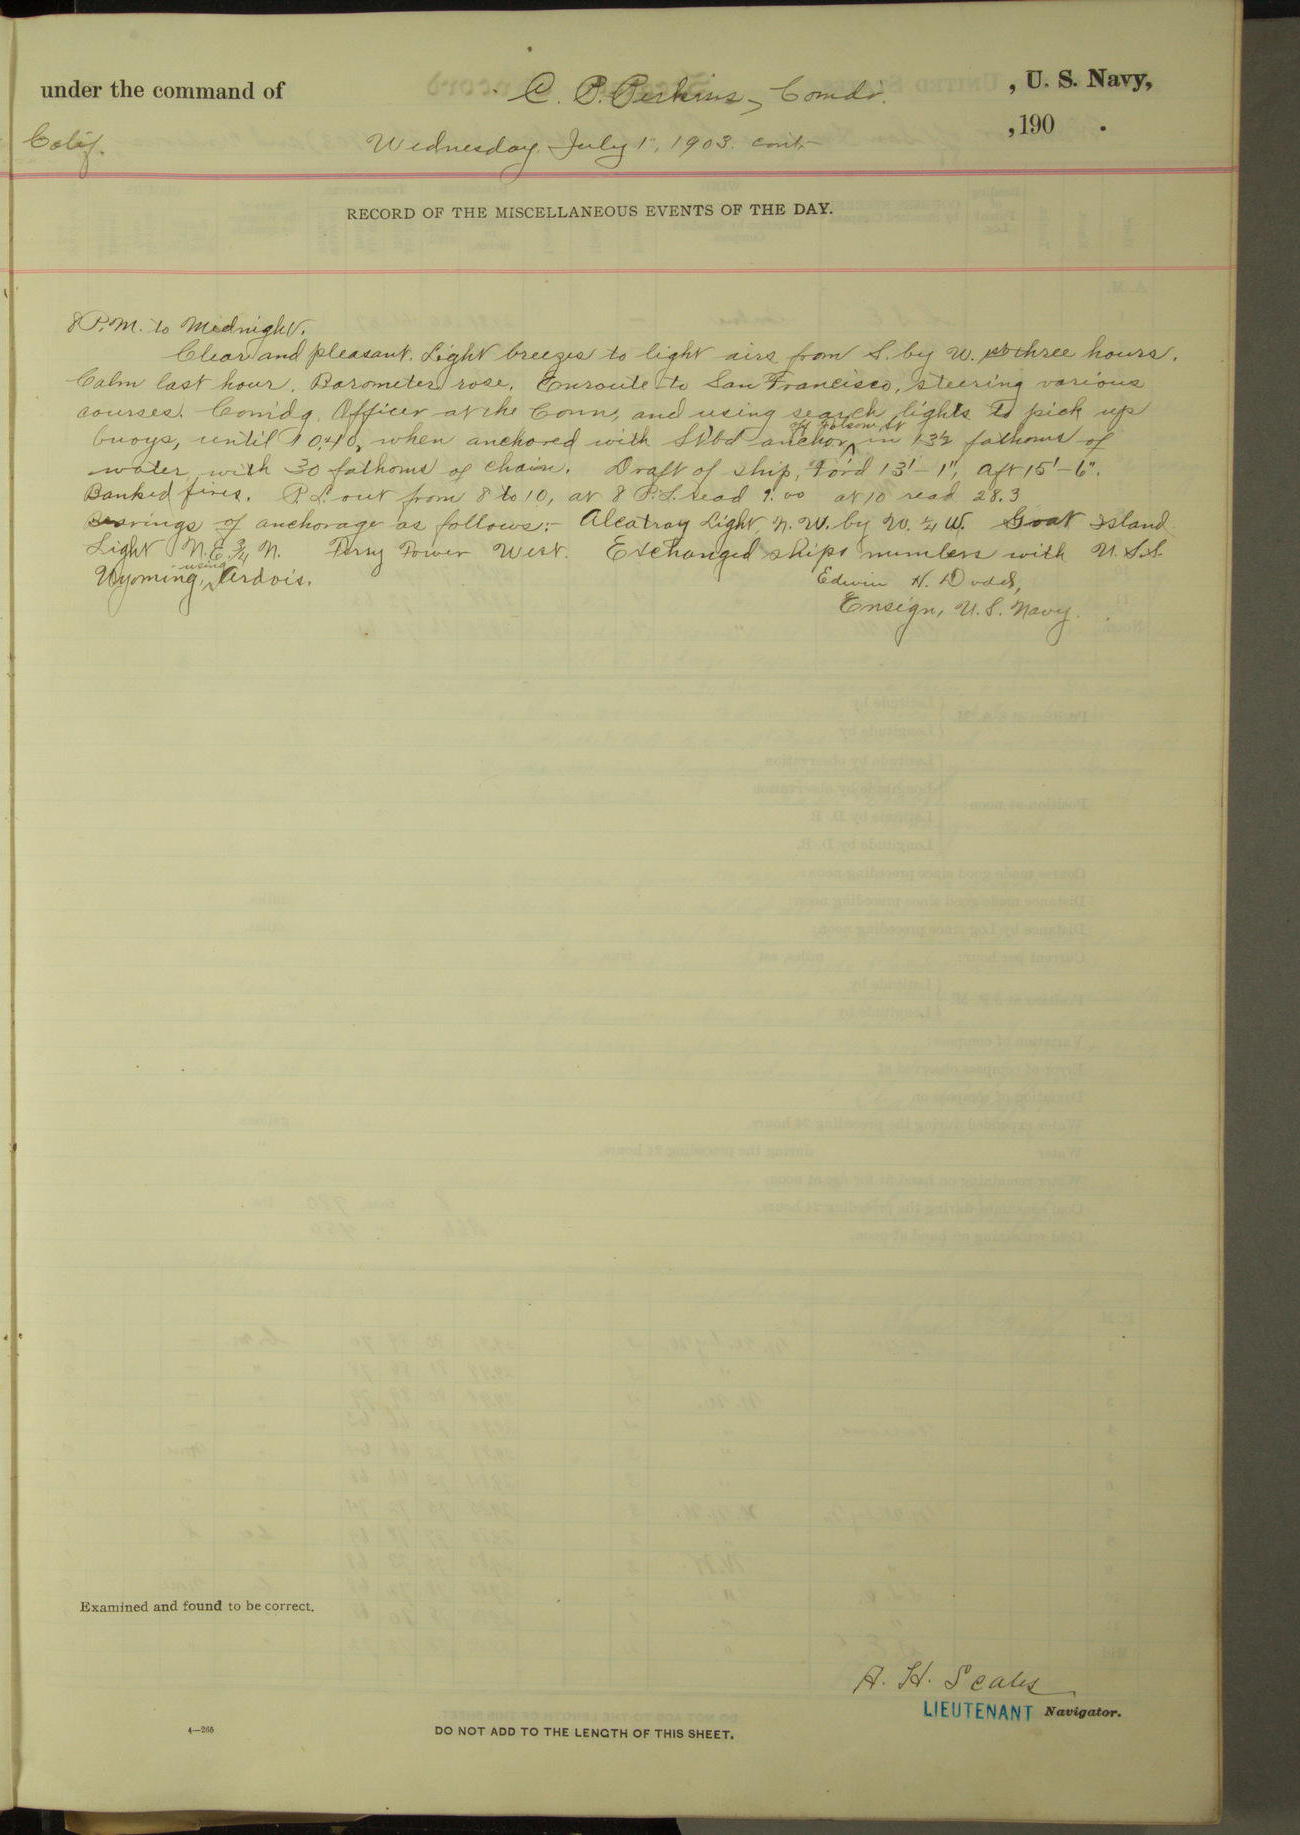 under the command of C. P. Perkins, Comdr. , U. S. Navy,
Calif. Wednesday, July 1", 1903. cont- , 190 .
RECORD OF THE MISCELLANEOUS EVENTS OF THE DAY.
8 P.M. to Midnight.
Clear and pleasant. Light breezes to light airs from S. by W. three hours.
Calm last hour. Barometer rose. Enroute to San Francisco, steering various
courses. Com'dg. Officer at the Conn, and using search lights to pick up
off Folsom St
buoys, until 10.40, when anchored with St'bd anchor, in 13½ fathoms of
water, with 30 fathoms of chain. Draft of ship, For'd 13'-1", Aft 15'-6".
Banked fires. P.L. out from 8 to 10, at 8 P.L. read 9.00 at 10 read 28.3
Bearings of anchorage as follows:- Alcatraz Light, N. W. by W. ¼ W. Goat Island
Light N.E. ¾ N. Ferry Tower West. Exchanged ships numbers with U.S.S.
Wyoming, using Ardois.
Edwin H. Dodd,
Ensign, U.S. Navy.
Examined and found to be correct.
A. H. Scales
LIEUTENANT Navigator.
4—266
DO NOT ADD TO THE LENGTH OF THIS SHEET.